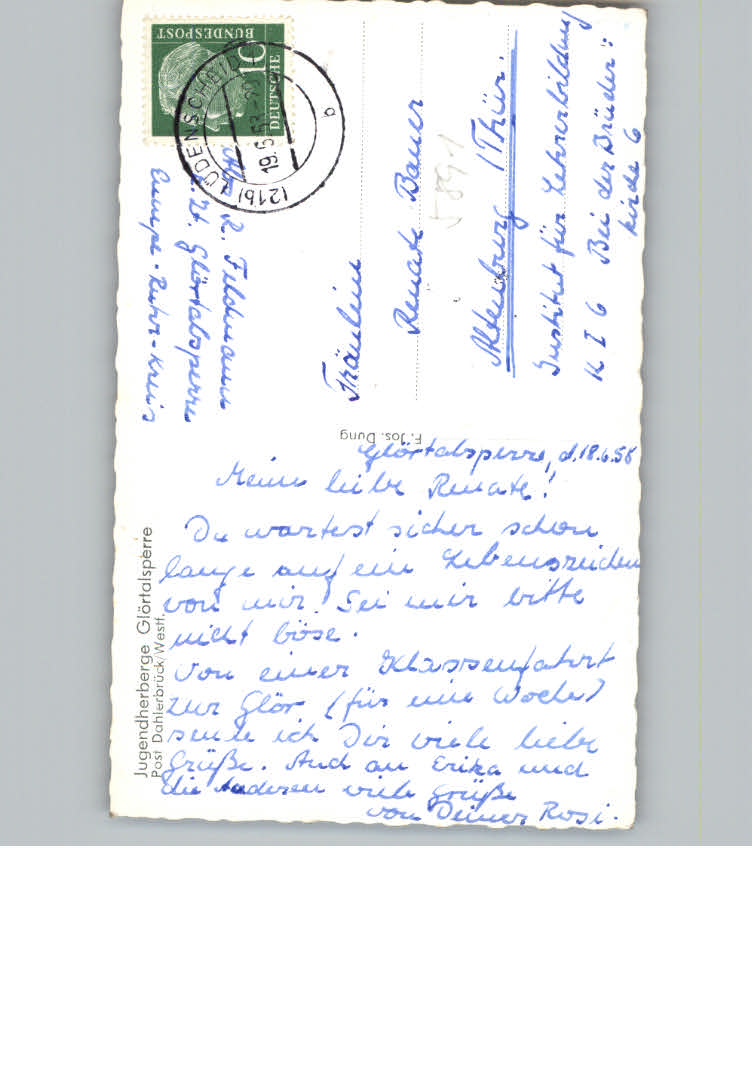 Jugendherberge Glörtalsperre
Post Dahlerbrück/Westf.
Glörtalsperre, d. 18.6.58
Meine liebe Renate!
Du wartest sicher schon
lange auf ein Lebenszeichen
von mir! Sei mir bitte
nicht böse.
Von einer Klassenfahrt
zur Glör (für eine Woche)
sende ich Dir viele liebe
Grüße. Auch an Erika und
die anderen viele Grüße
von Deiner Rosi.
F. Jos. Dung
DEUTSCHE
BUNDESPOST
10
(21b) LÜDENSCHEID
19.6.58
b
R. Feldmann
z. Zt. Glörtalsperre
Ennepe-Ruhr-Kreis
Fräulein
Renate Bauer
Altenburg /Thür.
Institut für Lehrerbildung
K I 6 Bei der Brüder-
kirche 6